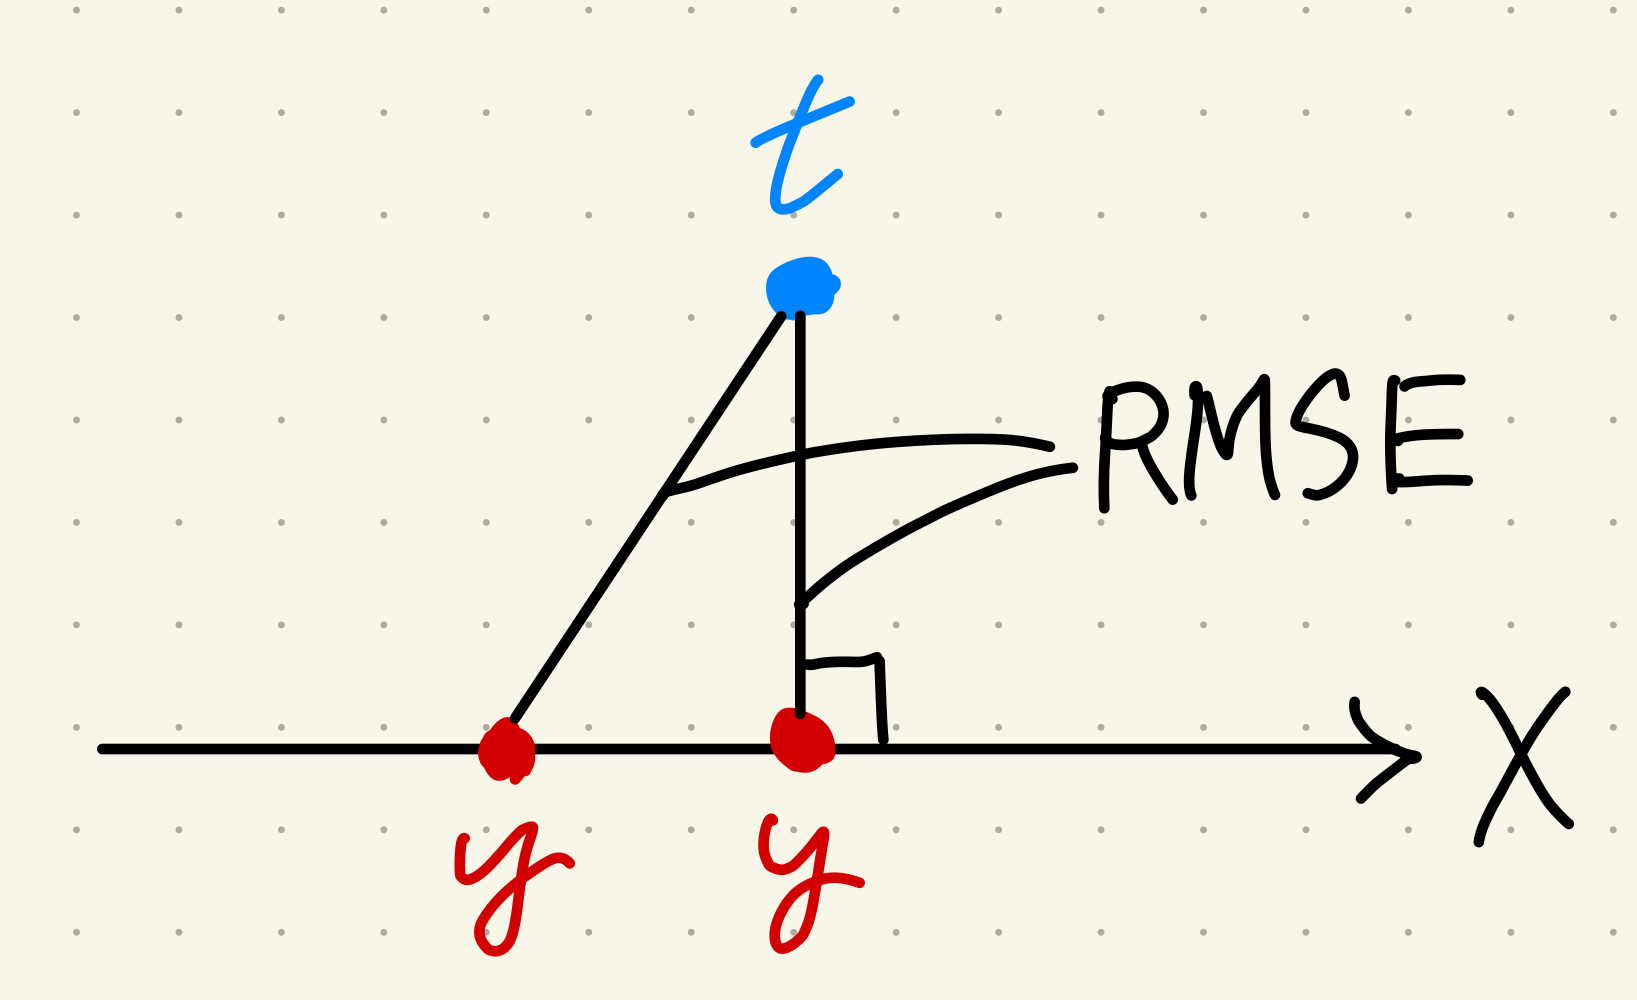 t
RMSE
X
y
y